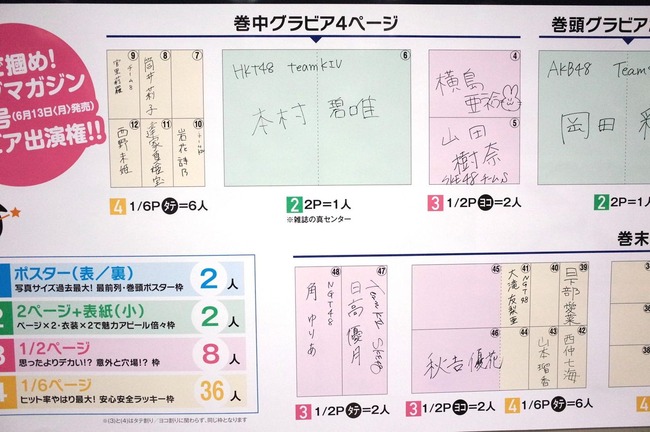 巻中グラビア4ページ
巻頭グラビア
で掴め!
マガジン
号(6月13日〈月〉発売)
ビア出演権!!
⑨
⑧
筒井莉子
⑦
⑫
西野未姫
⑪
⑩
岩花詩乃
4 1/6P タテ=6人
⑥
HKT48 teamKIV
本村 碧唯
2 2P=1人
※雑誌の真センター
④
横島亜衿
⑤
山田樹奈
SKE48 チームS
3 1/2P ヨコ=2人
AKB48 Team
岡田
2 2P=1人
巻末
ポスター(表/裏)
写真サイズ過去最大! 最前列・巻頭ポスター枠
2人
2 2ページ+表紙(小)
ページ×2・衣装×2で魅力アピール倍々枠
2人
3 1/2ページ
思ったよりデカい!? 意外と穴場!? 枠
8人
4 1/6ページ
ヒット率やはり最大! 安心安全ラッキー枠
36人
※(3)と(4)はタテ割り/ヨコ割りに関わらず、同じ枠となります
48
NGT48
角ゆりあ
47
日高優月
3 1/2P タテ=2人
45
46
秋吉優花
3 1/2P ヨコ=2人
41
NGT48
大滝友梨亜
40
39
日下部愛菜
44
43
山本瑠香
42
西仲七海
4 1/6P タテ=6人
38